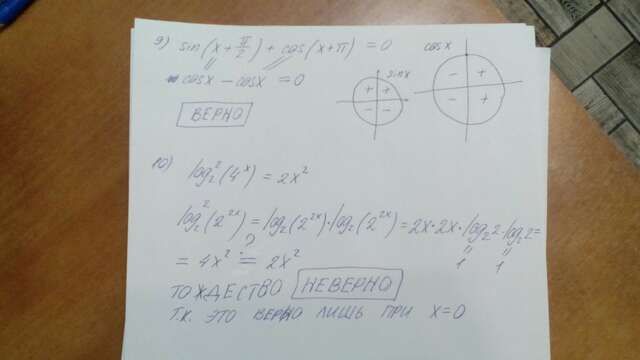 9) sin(x + π/2) + cos(x+π) = 0
cosx
sinx
cosx - cosx = 0
- +
- +
+ +
- -
ВЕРНО
10)
log₂²(4ˣ) = 2x²
log₂²(2²ˣ) = log₂(2²ˣ)·log₂(2²ˣ) = 2x·2x·log₂2·log₂2=
?
= 4x² = 2x²
" "
1 1
ТОЖДЕСТВО НЕВЕРНО
Т.К. ЭТО ВЕРНО ЛИШЬ ПРИ x=0